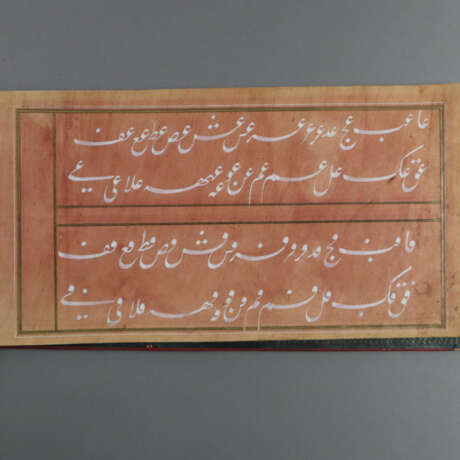 عا عب عج عد عر عر عس عش عص عط عع عف
عق عک عل عم عم عن عو عه عهه علا عی عے
فا فب فج فد فر فر فس فش فص فط فع فف
فق فک فل فم فم فن فو فه فهه فلا فی فے